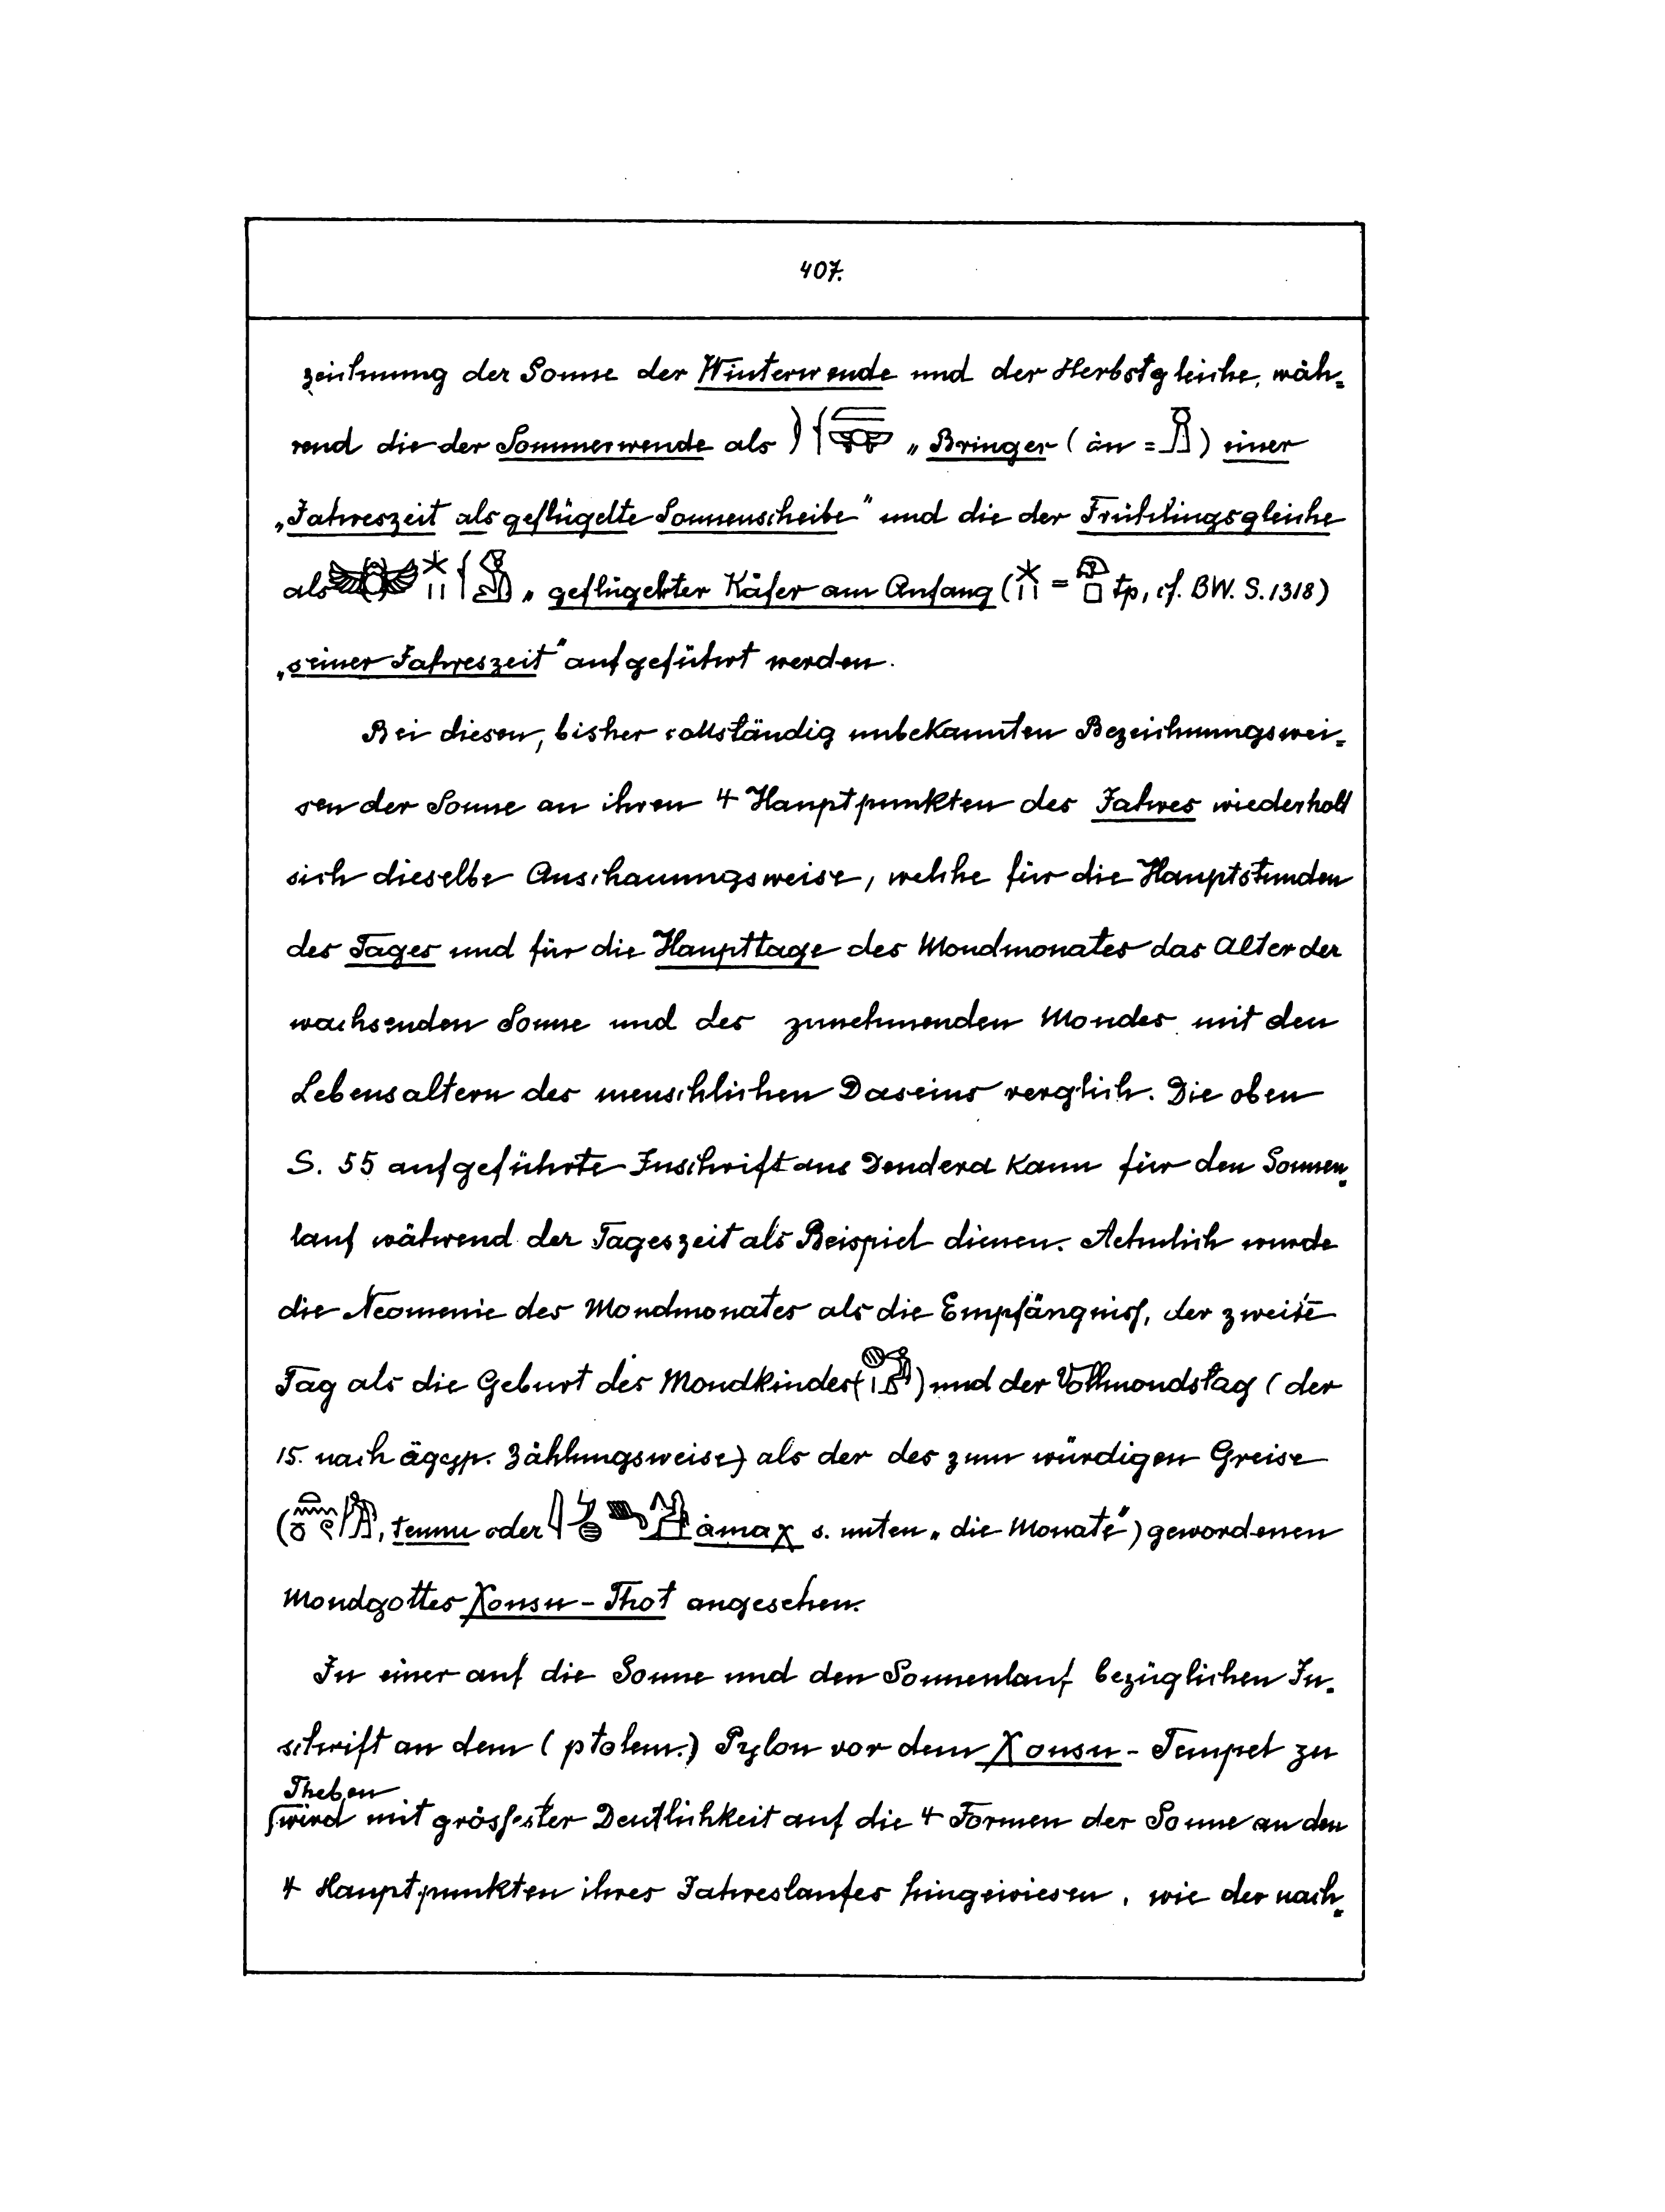 407.
zeichnung der Sonne der Winterwende und der Herbstgleiche, wäh=
rend die der Sommerwende als „Bringer (ȧn = ) einer
„Jahreszeit als geflügelte Sonnenscheibe“ und die der Frühlingsgleiche
als „geflügelter Käfer am Anfang ( = tp, cf. BW. S. 1318)
„seiner Jahreszeit“ aufgeführt werden.
Bei diesen, bisher vollständig unbekannten Bezeichnungswei=
sen der Sonne an ihren 4 Hauptpunkten des Jahres wiederholt
sich dieselbe Anschauungsweise, welche für die Hauptstunden
des Tages und für die Haupttage des Mondmonates das Alter der
wachsenden Sonne und des zunehmenden Mondes mit den
Lebensaltern des menschlichen Daseins verglich. Die oben
S. 55 aufgeführte Inschrift aus Dendera kann für den Sonnen=
lauf während der Tageszeit als Beispiel dienen. Aehnlich wurde
die Neomenie des Mondmonates als die Empfängniss, der zweite
Tag als die Geburt des Mondkindes ( ) und der Vollmondstag (der
15. nach ägyp. Zählungsweise) als der des zum würdigen Greise
( , tennu oder ȧmaχ s. unten „die Monate“) gewordenen
Mondgottes Χonsu-Thot angesehen.
In einer auf die Sonne und den Sonnenlauf bezüglichen In=
schrift an dem (ptolem.) Pylon vor dem Χonsu-Tempel zu
Theben
wird mit grössester Deutlichkeit auf die 4 Formen der Sonne an den
4 Hauptpunkten ihres Jahreslaufes hingewiesen, wie der nach=